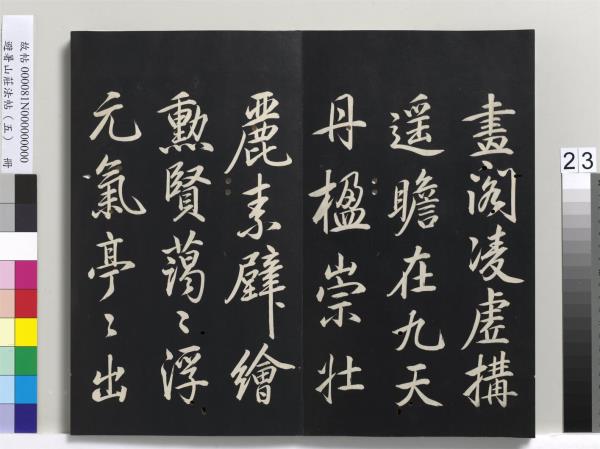 畫閣凌虛搆
遥瞻在九天
丹楹崇壮
麗素壁繪
勲賢藹〻浮
元氣亭〻出
故帖 000081N000000000
避暑山莊法帖（五） 冊
23